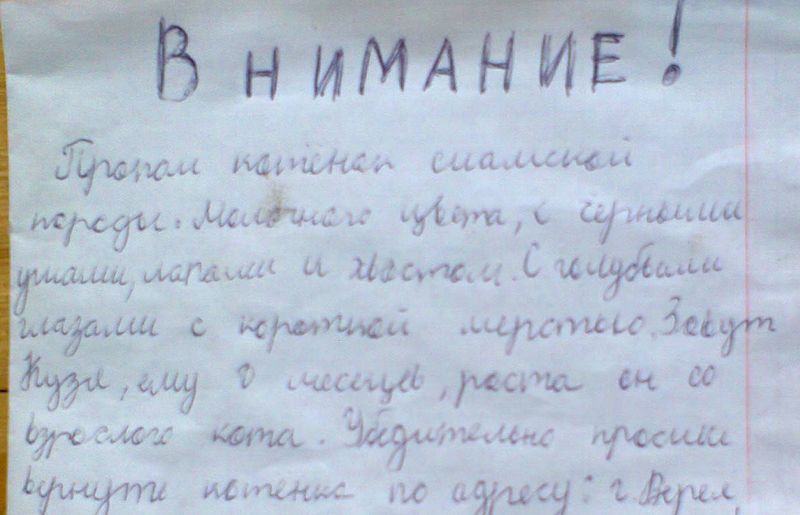 ВНИМАНИЕ!
Пропал котёнок сиамской
породы. Молочного цвета, с чёрными
ушами, лапами и хвостом. С голубыми
глазами с короткой шерстью. Зовут
Кузя, ему 8 месяцев, роста он со
взрослого кота. Убедительно просим
вернуть котенка по адресу: г. Верея,